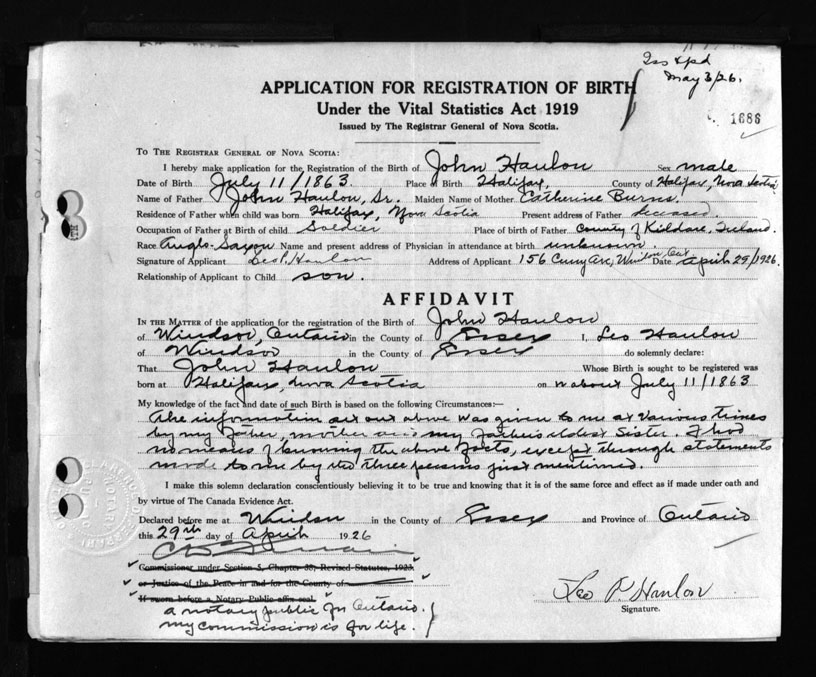 May 3/26.
APPLICATION FOR REGISTRATION OF BIRTH
Under the Vital Statistics Act 1919
1686
Issued by The Registrar General of Nova Scotia.
TO THE REGISTRAR GENERAL OF NOVA SCOTIA:
I hereby make application for the Registration of the Birth of John Hanlon Sex male
Date of Birth July 11/1863. Place of Birth Halifax, County of Halifax, Nova Scotia
Name of Father John Hanlon, Sr. Maiden Name of Mother Catherine Burns.
Residence of Father when child was born Halifax, Nova Scotia Present address of Father deceased.
Occupation of Father at Birth of child Soldier Place of birth of Father County of Kildare, Ireland.
Race Anglo-Saxon Name and present address of Physician in attendance at birth unknown.
Signature of Applicant Leo P. Hanlon Address of Applicant 156 Curry Ave, Windsor, Ont Date April 29/1926.
Relationship of Applicant to Child son.
AFFIDAVIT
IN THE MATTER of the application for the registration of the Birth of John Hanlon
of Windsor, Ontario in the County of Essex I, Leo Hanlon
of Windsor in the County of Essex do solemnly declare:
That John Hanlon Whose Birth is sought to be registered was
born at Halifax, Nova Scotia on or about July 11/1863
My knowledge of the fact and date of such Birth is based on the following Circumstances:—
The information set out above was given to me at various times
by my father, mother and my father's eldest sister. I had
no means of knowing the above facts, except through statements
made to me by the three persons just mentioned.
I make this solemn declaration conscientiously believing it to be true and knowing that it is of the same force and effect as if made under oath and
by virtue of The Canada Evidence Act.
Declared before me at Windsor in the County of Essex and Province of Ontario
this 29th day of April 1926
Commissioner under Section 5, Chapter 38, Revised Statutes, 1923
or Justice of the Peace in and for the County of
If sworn before a Notary Public affix seal.
Leo P Hanlon
Signature.
a notary public for Ontario.
my commission is for life.